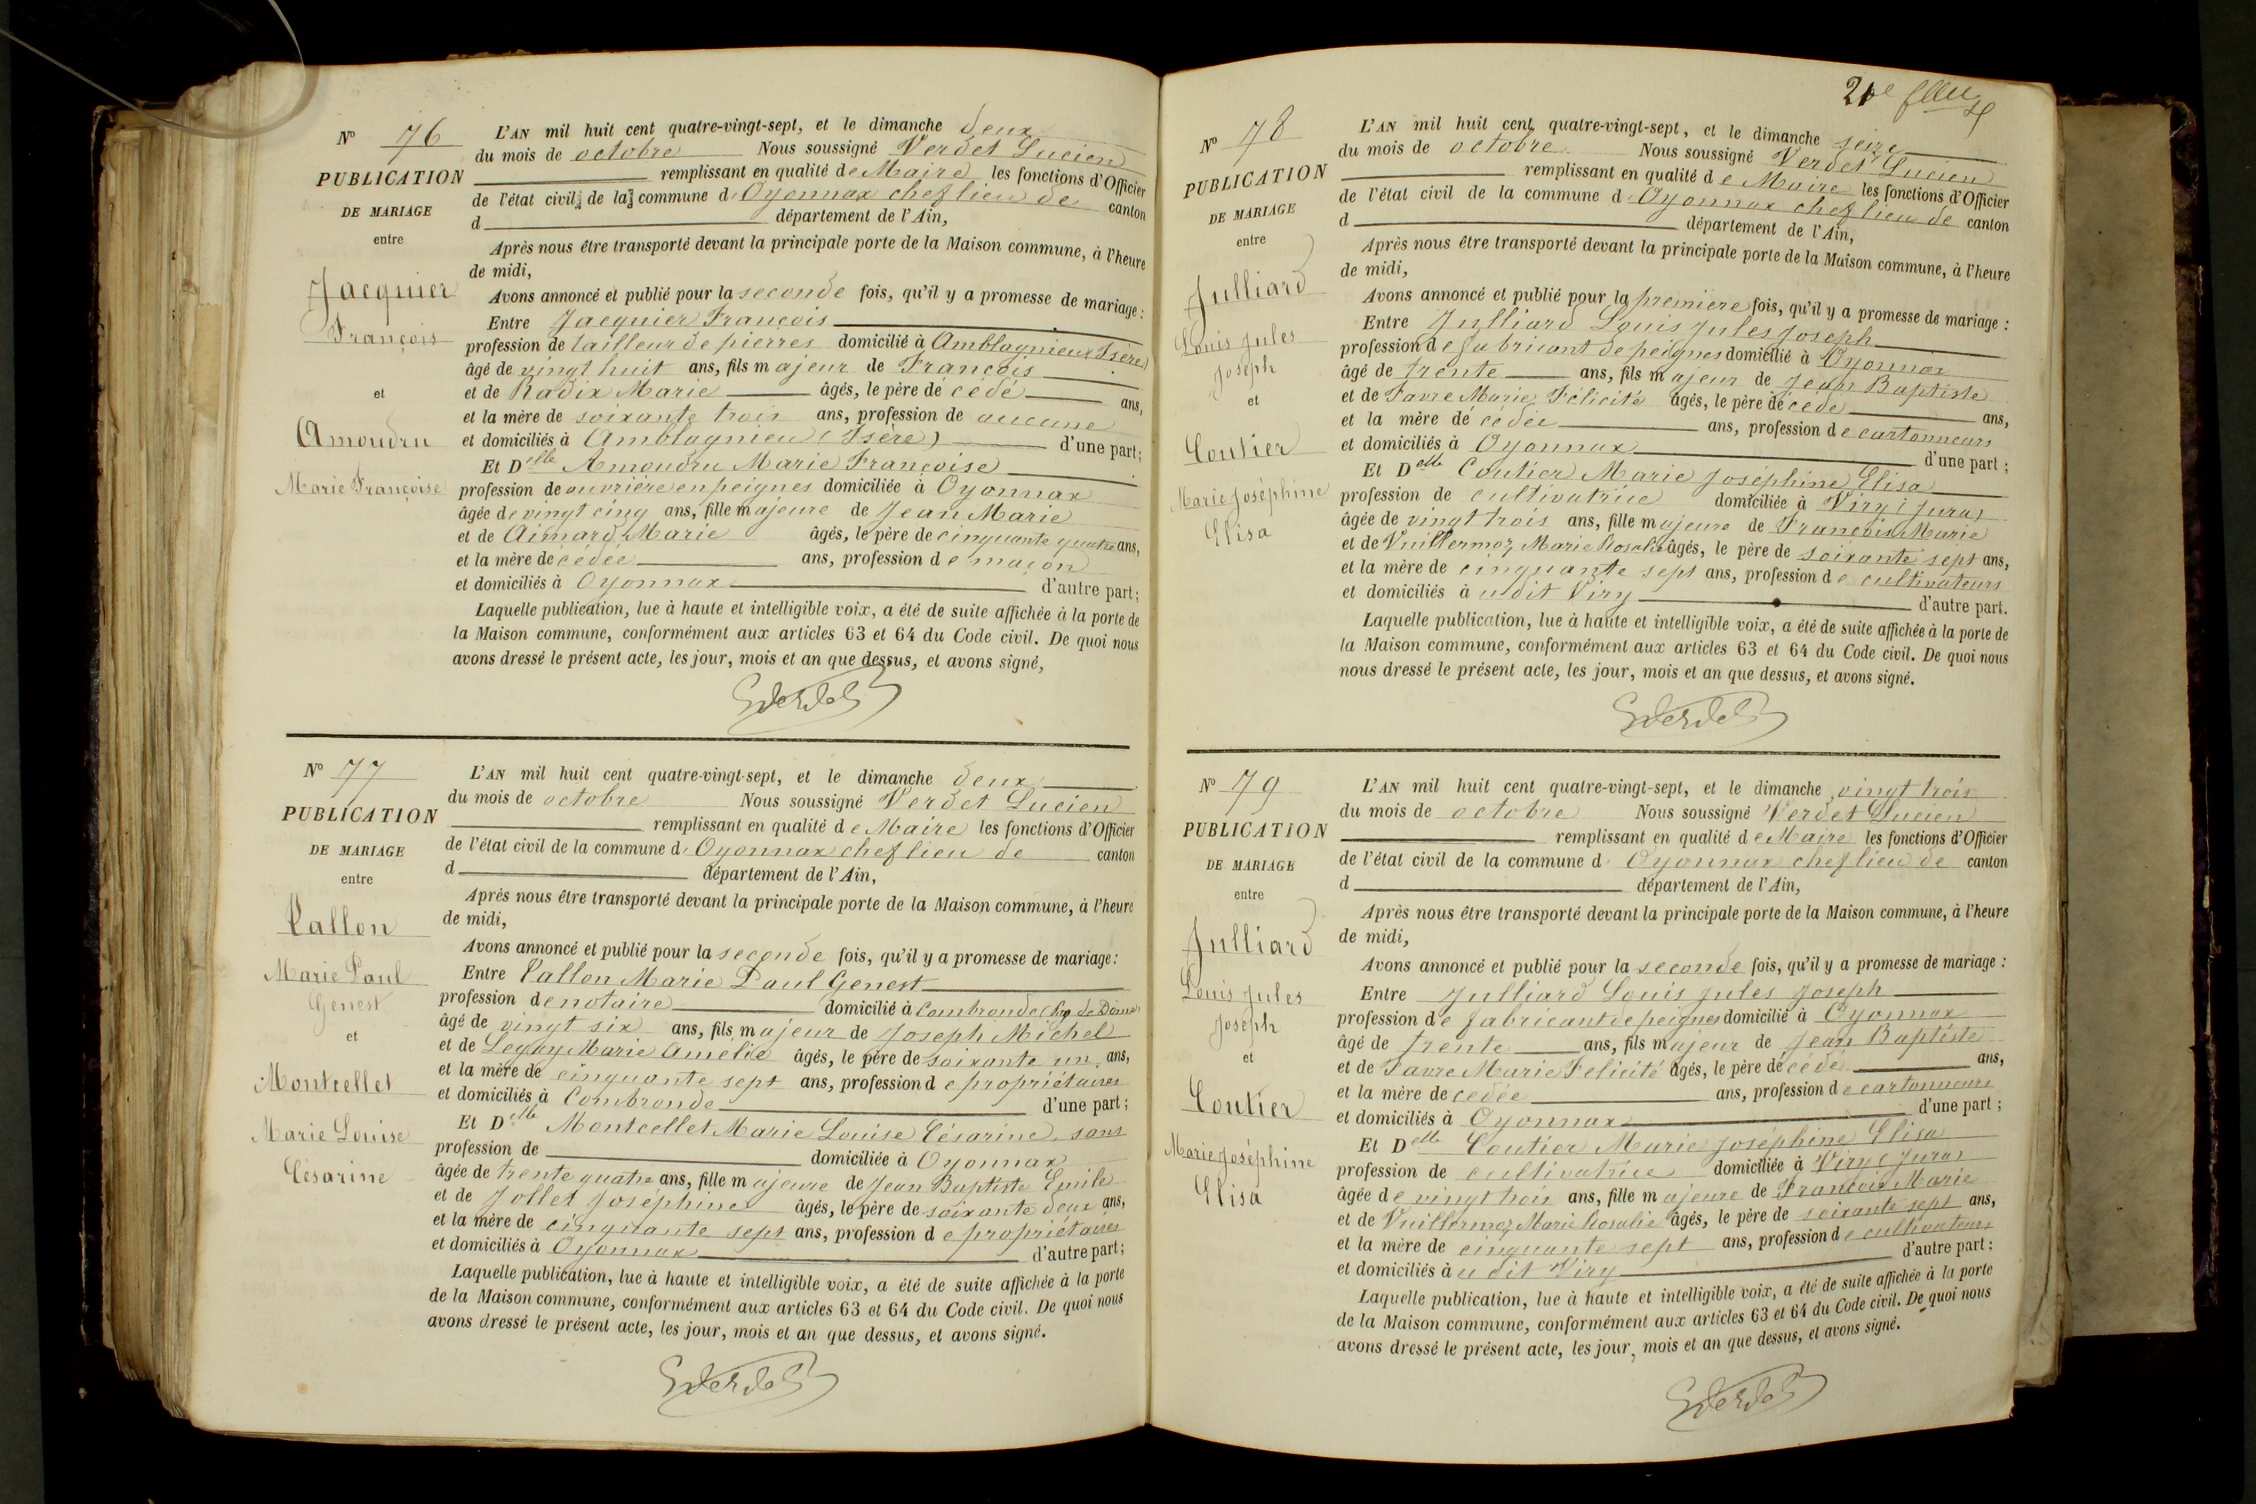 N° 76
PUBLICATION
DE MARIAGE
entre
Jacquier
François
et
Amoudru
Marie Françoise
L'AN mil huit cent quatre-vingt-sept, et le dimanche deux
du mois de octobre Nous soussigné Verdet Lucien
remplissant en qualité de Maire les fonctions d'Officier
de l'état civil de la commune d'Oyonnax chef lieu de canton
d département de l'Ain,
Après nous être transporté devant la principale porte de la Maison commune, à l'heure
de midi,
Avons annoncé et publié pour la seconde fois, qu'il y a promesse de mariage :
Entre Jacquier François
profession de tailleur de pierres domicilié à Amblagnieu (Isère)
âgé de vingt huit ans, fils majeur de François
et de Radix Marie âgés, le père dé cédé ans,
et la mère de soixante trois ans, profession de aucune
et domiciliés à Amblagnieu (Isère) d'une part ;
Et Delle Amoudru Marie Françoise
profession de ouvrière en peignes domiciliée à Oyonnax
âgée de vingt cinq ans, fille majeure de Jean Marie
et de Aimard Marie âgés, le père de cinquante quatre ans,
et la mère de cédée ans, profession de maçon
et domiciliés à Oyonnax d'autre part ;
Laquelle publication, lue à haute et intelligible voix, a été de suite affichée à la porte de
la Maison commune, conformément aux articles 63 et 64 du Code civil. De quoi nous
avons dressé le présent acte, les jour, mois et an que dessus, et avons signé,
Verdet
N° 77
PUBLICATION
DE MARIAGE
entre
Vallon
Marie Paul
Genest
et
Montcellet
Marie Louise
Césarine
L'AN mil huit cent quatre-vingt-sept, et le dimanche deux
du mois de octobre Nous soussigné Verdet Lucien
remplissant en qualité de Maire les fonctions d'Officier
de l'état civil de la commune d'Oyonnax chef lieu de canton
d département de l'Ain,
Après nous être transporté devant la principale porte de la Maison commune, à l'heure
de midi,
Avons annoncé et publié pour la seconde fois, qu'il y a promesse de mariage :
Entre Vallon Marie Paul Genest
profession de notaire domicilié à Combronde (Puy de Dôme)
âgé de vingt six ans, fils majeur de Joseph Michel
et de Legay Marie Amélie âgés, le père de soixante un ans,
et la mère de cinquante sept ans, profession de propriétaires
et domiciliés à Combronde d'une part ;
Et Delle Montcellet Marie Louise Césarine, sans
profession de domiciliée à Oyonnax
âgée de trente quatre ans, fille majeure de Jean Baptiste Emile
et de Jollet Joséphine âgés, le père de soixante deux ans,
et la mère de cinquante sept ans, profession de propriétaires
et domiciliés à Oyonnax d'autre part ;
Laquelle publication, lue à haute et intelligible voix, a été de suite affichée à la porte
de la Maison commune, conformément aux articles 63 et 64 du Code civil. De quoi nous
avons dressé le présent acte, les jour, mois et an que dessus, et avons signé.
Verdet
21e
N° 78
PUBLICATION
DE MARIAGE
entre
Julliard
Louis Jules
Joseph
et
Coutier
Marie Joséphine
Elisa
L'AN mil huit cent quatre-vingt-sept, et le dimanche seize
du mois de octobre Nous soussigné Verdet Lucien
remplissant en qualité de Maire les fonctions d'Officier
de l'état civil de la commune d'Oyonnax chef lieu de canton
d département de l'Ain,
Après nous être transporté devant la principale porte de la Maison commune, à l'heure
de midi,
Avons annoncé et publié pour la première fois, qu'il y a promesse de mariage :
Entre Julliard Louis Jules Joseph
profession de fabricant de peignes domicilié à Oyonnax
âgé de trente ans, fils majeur de Jean Baptiste
et de Favre Marie Félicité âgés, le père dé cédé ans,
et la mère dé cédée ans, profession de cartonneurs
et domiciliés à Oyonnax d'une part ;
Et Delle Coutier Marie Joséphine Elisa
profession de cultivatrice domiciliée à Viry (Jura)
âgée de vingt trois ans, fille majeure de François Marie
et de Vuillermoz Marie Rosalie âgés, le père de soixante sept ans,
et la mère de cinquante sept ans, profession de cultivateurs
et domiciliés à udit Viry d'autre part.
Laquelle publication, lue à haute et intelligible voix, a été de suite affichée à la porte de
la Maison commune, conformément aux articles 63 et 64 du Code civil. De quoi nous
nous dressé le présent acte, les jour, mois et an que dessus, et avons signé.
Verdet
N° 79
PUBLICATION
DE MARIAGE
entre
Julliard
Louis Jules
Joseph
et
Coutier
Marie Joséphine
Elisa
L'AN mil huit cent quatre-vingt-sept, et le dimanche vingt trois
du mois de octobre Nous soussigné Verdet Lucien
remplissant en qualité de Maire les fonctions d'Officier
de l'état civil de la commune d'Oyonnax chef lieu de canton
d département de l'Ain,
Après nous être transporté devant la principale porte de la Maison commune, à l'heure
de midi,
Avons annoncé et publié pour la seconde fois, qu'il y a promesse de mariage :
Entre Julliard Louis Jules Joseph
profession de fabricant de peignes domicilié à Oyonnax
âgé de trente ans, fils majeur de Jean Baptiste
et de Favre Marie Félicité âgés, le père dé cédé ans,
et la mère de cédée ans, profession de cartonneurs
et domiciliés à Oyonnax d'une part ;
Et Delle Coutier Marie Joséphine Elisa
profession de cultivatrice domiciliée à Viry (Jura)
âgée de vingt trois ans, fille majeure de François Marie
et de Vuillermoz Marie Rosalie âgés, le père de soixante sept ans,
et la mère de cinquante sept ans, profession de cultivateurs
et domiciliés à udit Viry d'autre part ;
Laquelle publication, lue à haute et intelligible voix, a été de suite affichée à la porte
de la Maison commune, conformément aux articles 63 et 64 du Code civil. De quoi nous
avons dressé le présent acte, les jour, mois et an que dessus, et avons signé.
Verdet